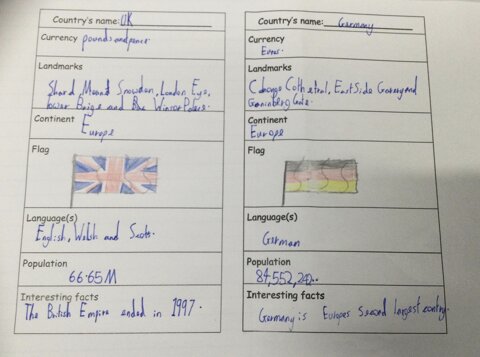 Country's name: UK
Currency pounds and pence
Landmarks
Shard, Mount Snowdon, London Eye,
tower Brige and
Continent
Europe
Flag
Language(s)
English, Welsh and Scots.
Population
66.65M
Interesting facts
The British Empire ended in 1997.
Country's name: Germany
Currency
Euros.
Landmarks
Cathetral, East Side Gallery and
Continent
Europe
Flag
Language(s)
German
Population
84,552,242.
Interesting facts
Germany is Europes second largest contry.